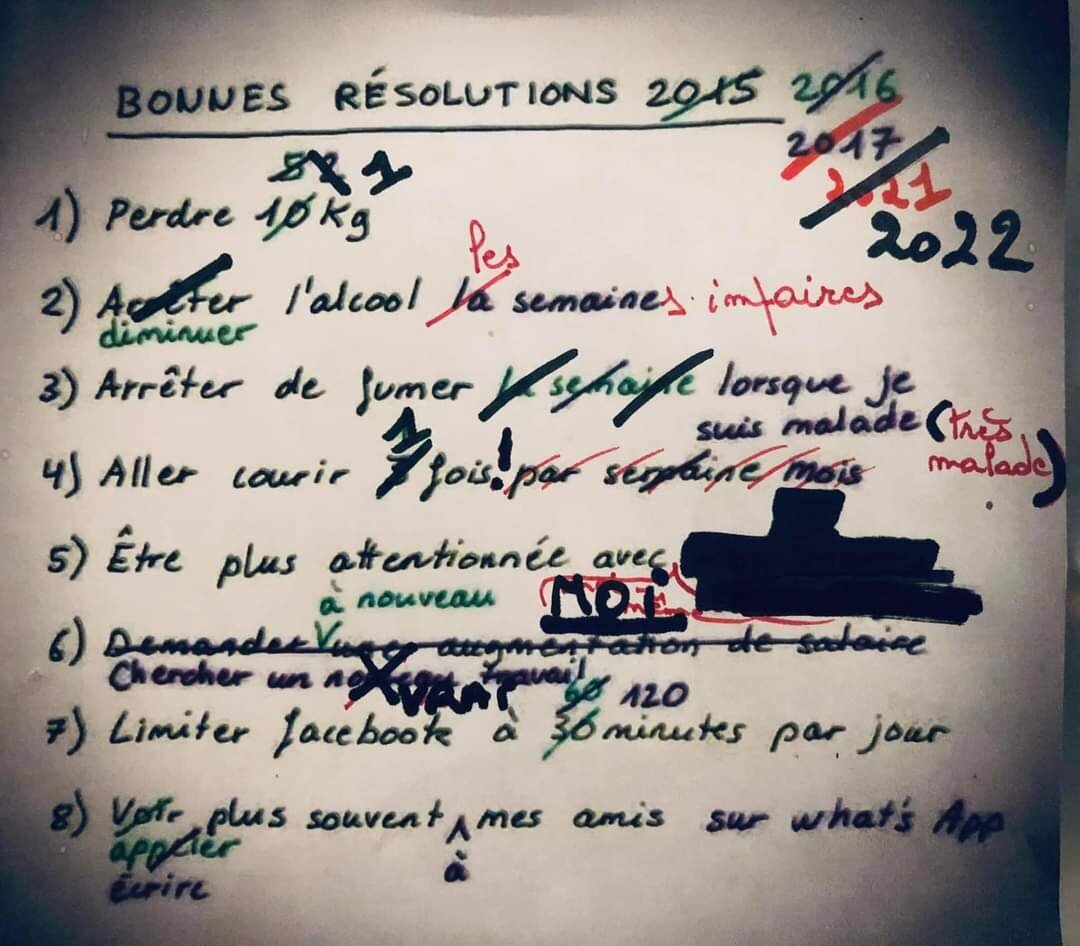 BONNES RÉSOLUTIONS 2015 2016
2017
2021
2022
1
1) Perdre 10 Kg
les
2) Arrêter l'alcool la semaines impaires
diminuer
3) Arrêter de fumer la semaine lorsque je
suis malade (très
malade)
1
4) Aller courir fois! par semaine mois
5) Être plus attentionnée avec
à nouveau MOI
6) Demander une augmentation de salaire
Chercher un nouveau travail
VRAI
60 120
7) Limiter facebook à 30 minutes par jour
8) Voir plus souvent mes amis sur what's App
appeler à
écrire